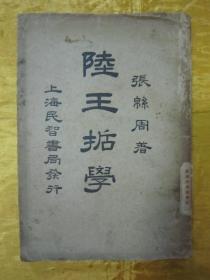 張緜周著
陸王哲學
上海民智書局發行